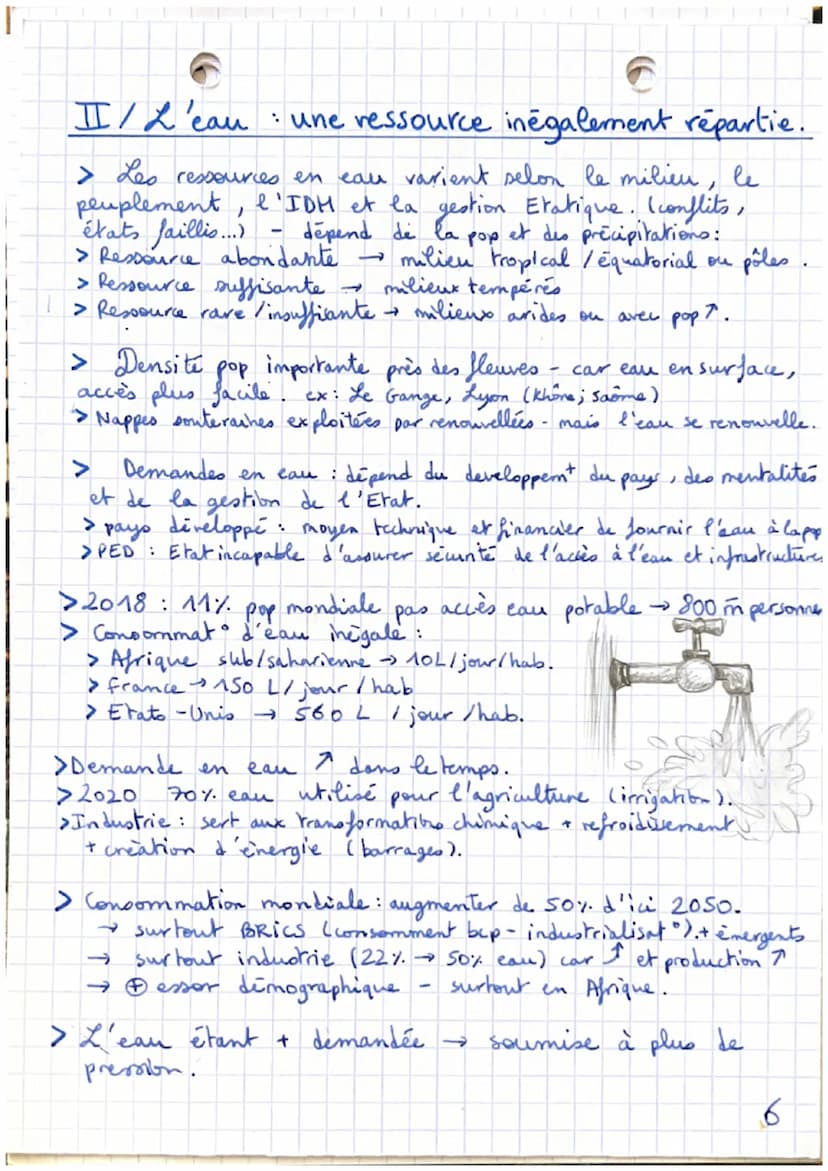 II / L'eau : une ressource inégalement répartie.
> Les ressources en eau varient selon le milieu, le
peuplement, l'IDH et la gestion Etatique. (conflits,
états faillis...) - dépend de la pop et des précipitations :
> Ressource abondante → milieu tropical / équatorial ou pôles.
> Ressource suffisante → milieux tempérés
> Ressource rare / insuffisante → milieux arides ou avec pop ↗.
> Densité pop importante près des fleuves - car eau en surface,
accès plus facile. ex : Le Gange, Lyon (Rhône ; Saône)
> Nappes souteraines exploitées par renouvellées - mais l'eau se renouvelle.
> Demandes en eau : dépend du developpemt du pays, des mentalités
et de la gestion de l'Etat.
> pays développé : moyen technique et financier de fournir l'eau à la pop
> PED : Etat incapable d'assurer sécurité de l'accès à l'eau et infrastructures
> 2018 : 11% pop mondiale pas accès eau potable → 800 m personne
> Consommat° d'eau inégale :
> Afrique sub/saharienne → 10L/jour/hab.
> France → 150 L/jour/hab
> Etats-Unis → 560 L /jour/hab.
> Demande en eau ↗ dans le temps.
> 2020 70% eau utilisé pour l'agriculture (irrigation).
> Industrie : sert aux transformations chimique + refroidissement
+ création d'énergie (barrages).
> Consommation mondiale : augmenter de 50% d'ici 2050.
→ surtout BRICS (consomment bcp - industrialisat°). + émergents
→ surtout industrie (22% → 50% eau) car ↑ et production ↗
→ ⊕ essor démographique - surtout en Afrique.
> L'eau étant + demandée → soumise à plus de
pression.
6